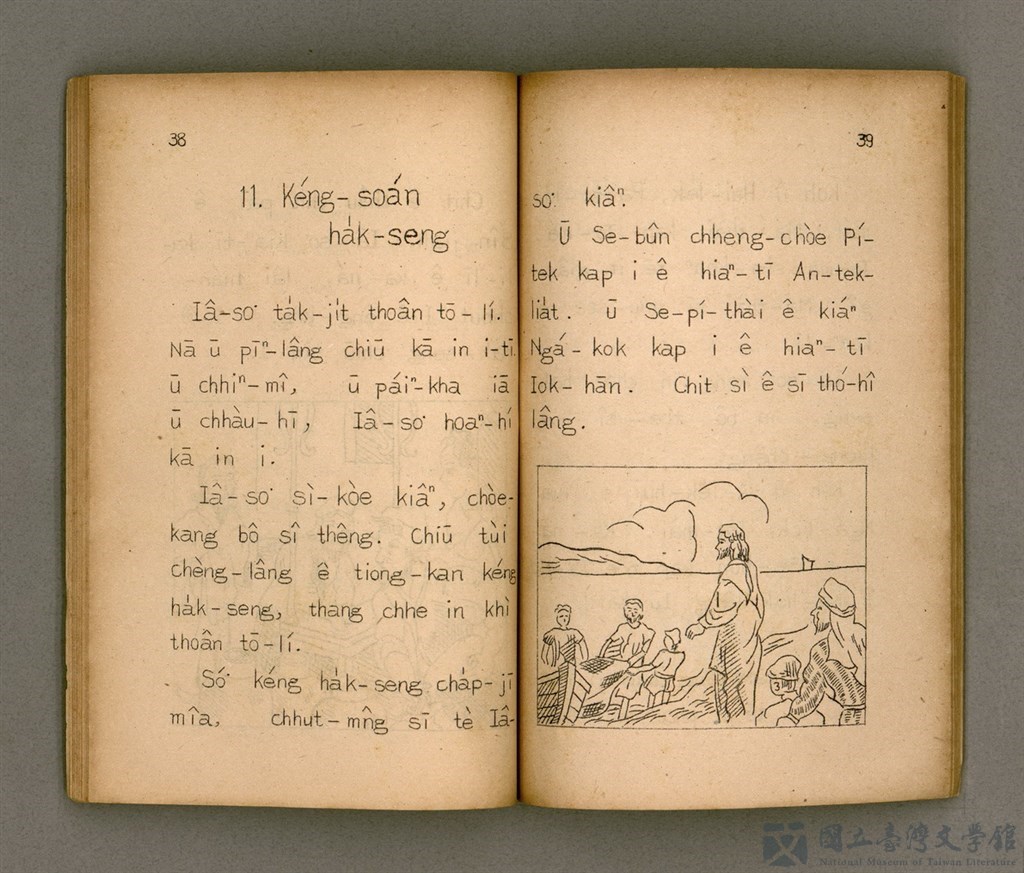 38
11. Kéng-soán
ha̍k-seng
Iâ-so͘ ta̍k-ji̍t thoân tō-lí.
Nā ū pīⁿ-lâng chiū kā in i-tī.
ū chhiⁿ-mî, ū pái-kha iā
ū chhàu-hī, Iâ-so͘ hoaⁿ-hí
kā in i.
Iâ-so͘ sì-kòe kiâⁿ, chòe-
kang bô sî thêng. Chiū tùi
chèng-lâng ê tiong-kan kéng
ha̍k-seng, thang chhe in khì
thoân tō-lí.
Só͘ kéng ha̍k-seng cha̍p-jī
mîa, chhut-mn̂g sī tè Iâ-
39
so͘ kiâⁿ.
Ū Se-bûn chheng-chòe Pí-
tek kap i ê hiaⁿ-tī An-tek-
lia̍t. ū Se-pí-thài ê kiáⁿ
Ngá-kok kap i ê hiaⁿ-tī
Iok-hān. Chit sì ê sī thó-hî
lâng.
國立臺灣文學館
National Museum of Taiwan Literature